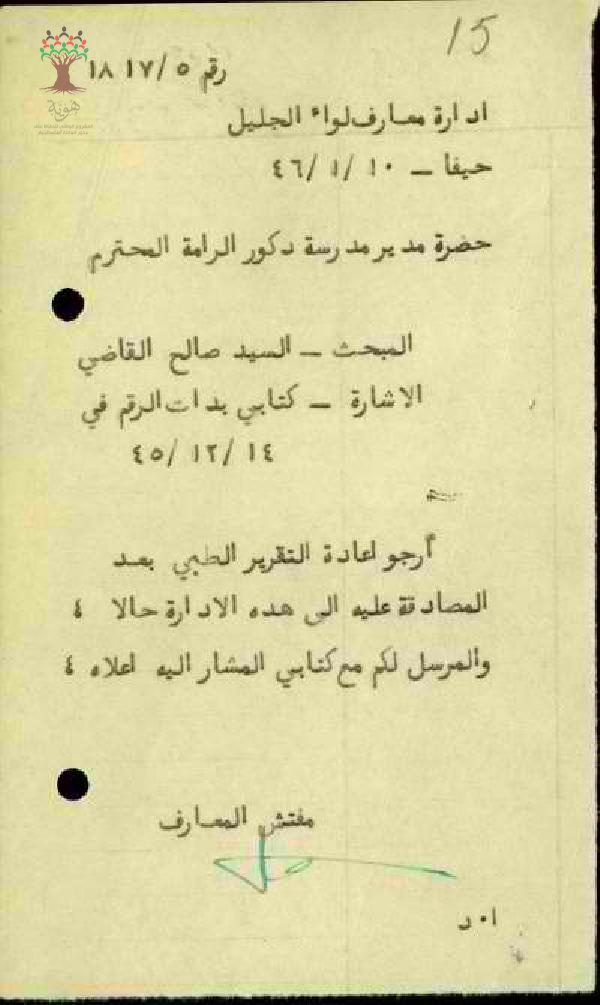 15
هوية
رقم ٥/ ١٧ ١٨
ادارة معارف لواء الجليل
حيفا — ١٠ /١ /٤٦
حضرة مدير مدرسة دكور الرامة المحترم
المبحث — السيد صالح القاضي
الاشارة — كتابي بدات الرقم في
١٤ /١٢ /٤٥
أرجو اعادة التقرير الطبي بعد
المصادقة عليه الى هده الادارة حالا ٤
والمرسل لكم مع كتابي المشار اليه اعلاه ٤
مفتش المعارف
ا٠ د